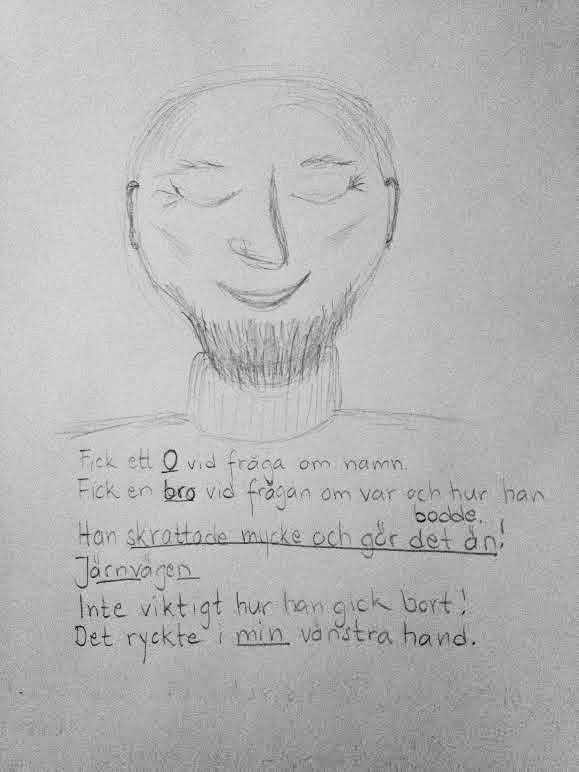 Fick ett O vid fråga om namn.
Fick en bro vid frågan om var och hur han
bodde.
Han skrattade mycke och gör det än!
Järnvägen
Inte viktigt hur han gick bort!
Det ryckte i min vänstra hand.